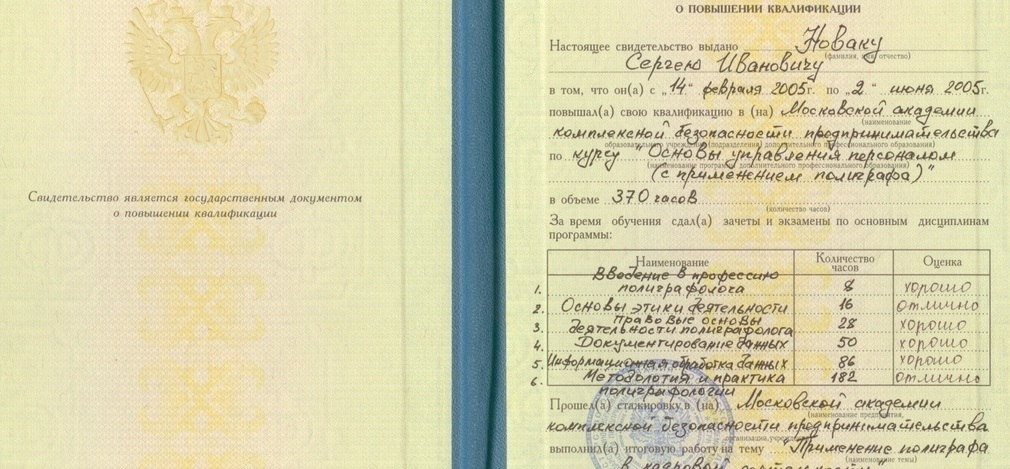 Свидетельство является государственным документом
о повышении квалификации
О ПОВЫШЕНИИ КВАЛИФИКАЦИИ
Настоящее свидетельство выдано Новаку
(фамилия, имя, отчество)
Сергею Ивановичу
в том, что он(а) с „14“ февраля 2005г. по „2“ июня 2005г.
повышал(а) свою квалификацию в (на) Московской академии
(наименование
комплексной безопасности предпринимательства
образовательного учреждения (подразделения) дополнительного профессионального образования)
по курсу "Основы управления персоналом
(наименование программы дополнительного профессионального образования)
(с применением полиграфа)"
в объеме 370 часов
(количество часов)
За время обучения сдал(а) зачеты и экзамены по основным дисциплинам
программы:
Наименование Количество часов Оценка
1. Введение в профессию полиграфолога 8 хорошо
2. Основы этики деятельности 16 отлично
3. Правовые основы деятельности полиграфолога 28 хорошо
4. Документирование данных 50 хорошо
5. Информационная обработка данных 86 хорошо
6. Методология и практика полиграфологии 182 отлично
Прошел(а) стажировку в (на) Московской академии
(наименование предприятия,
комплексной безопасности предпринимательства
организации, учреждения)
выполнил(а) итоговую работу на тему "Применение полиграфа
(наименование темы)
в кадровой